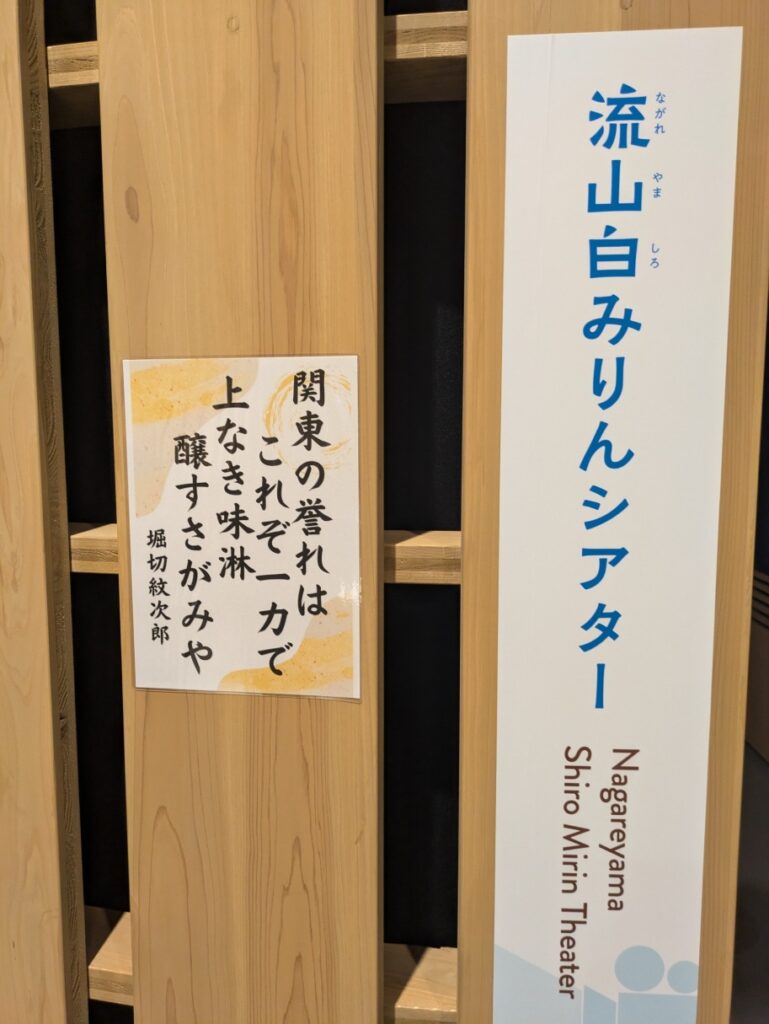 流山白みりんシアター
ながれ やま しろ
Nagareyama
Shiro Mirin Theater
関東の誉れは
これぞ一力で
上なき味淋
醸すさがみや
堀切紋次郎